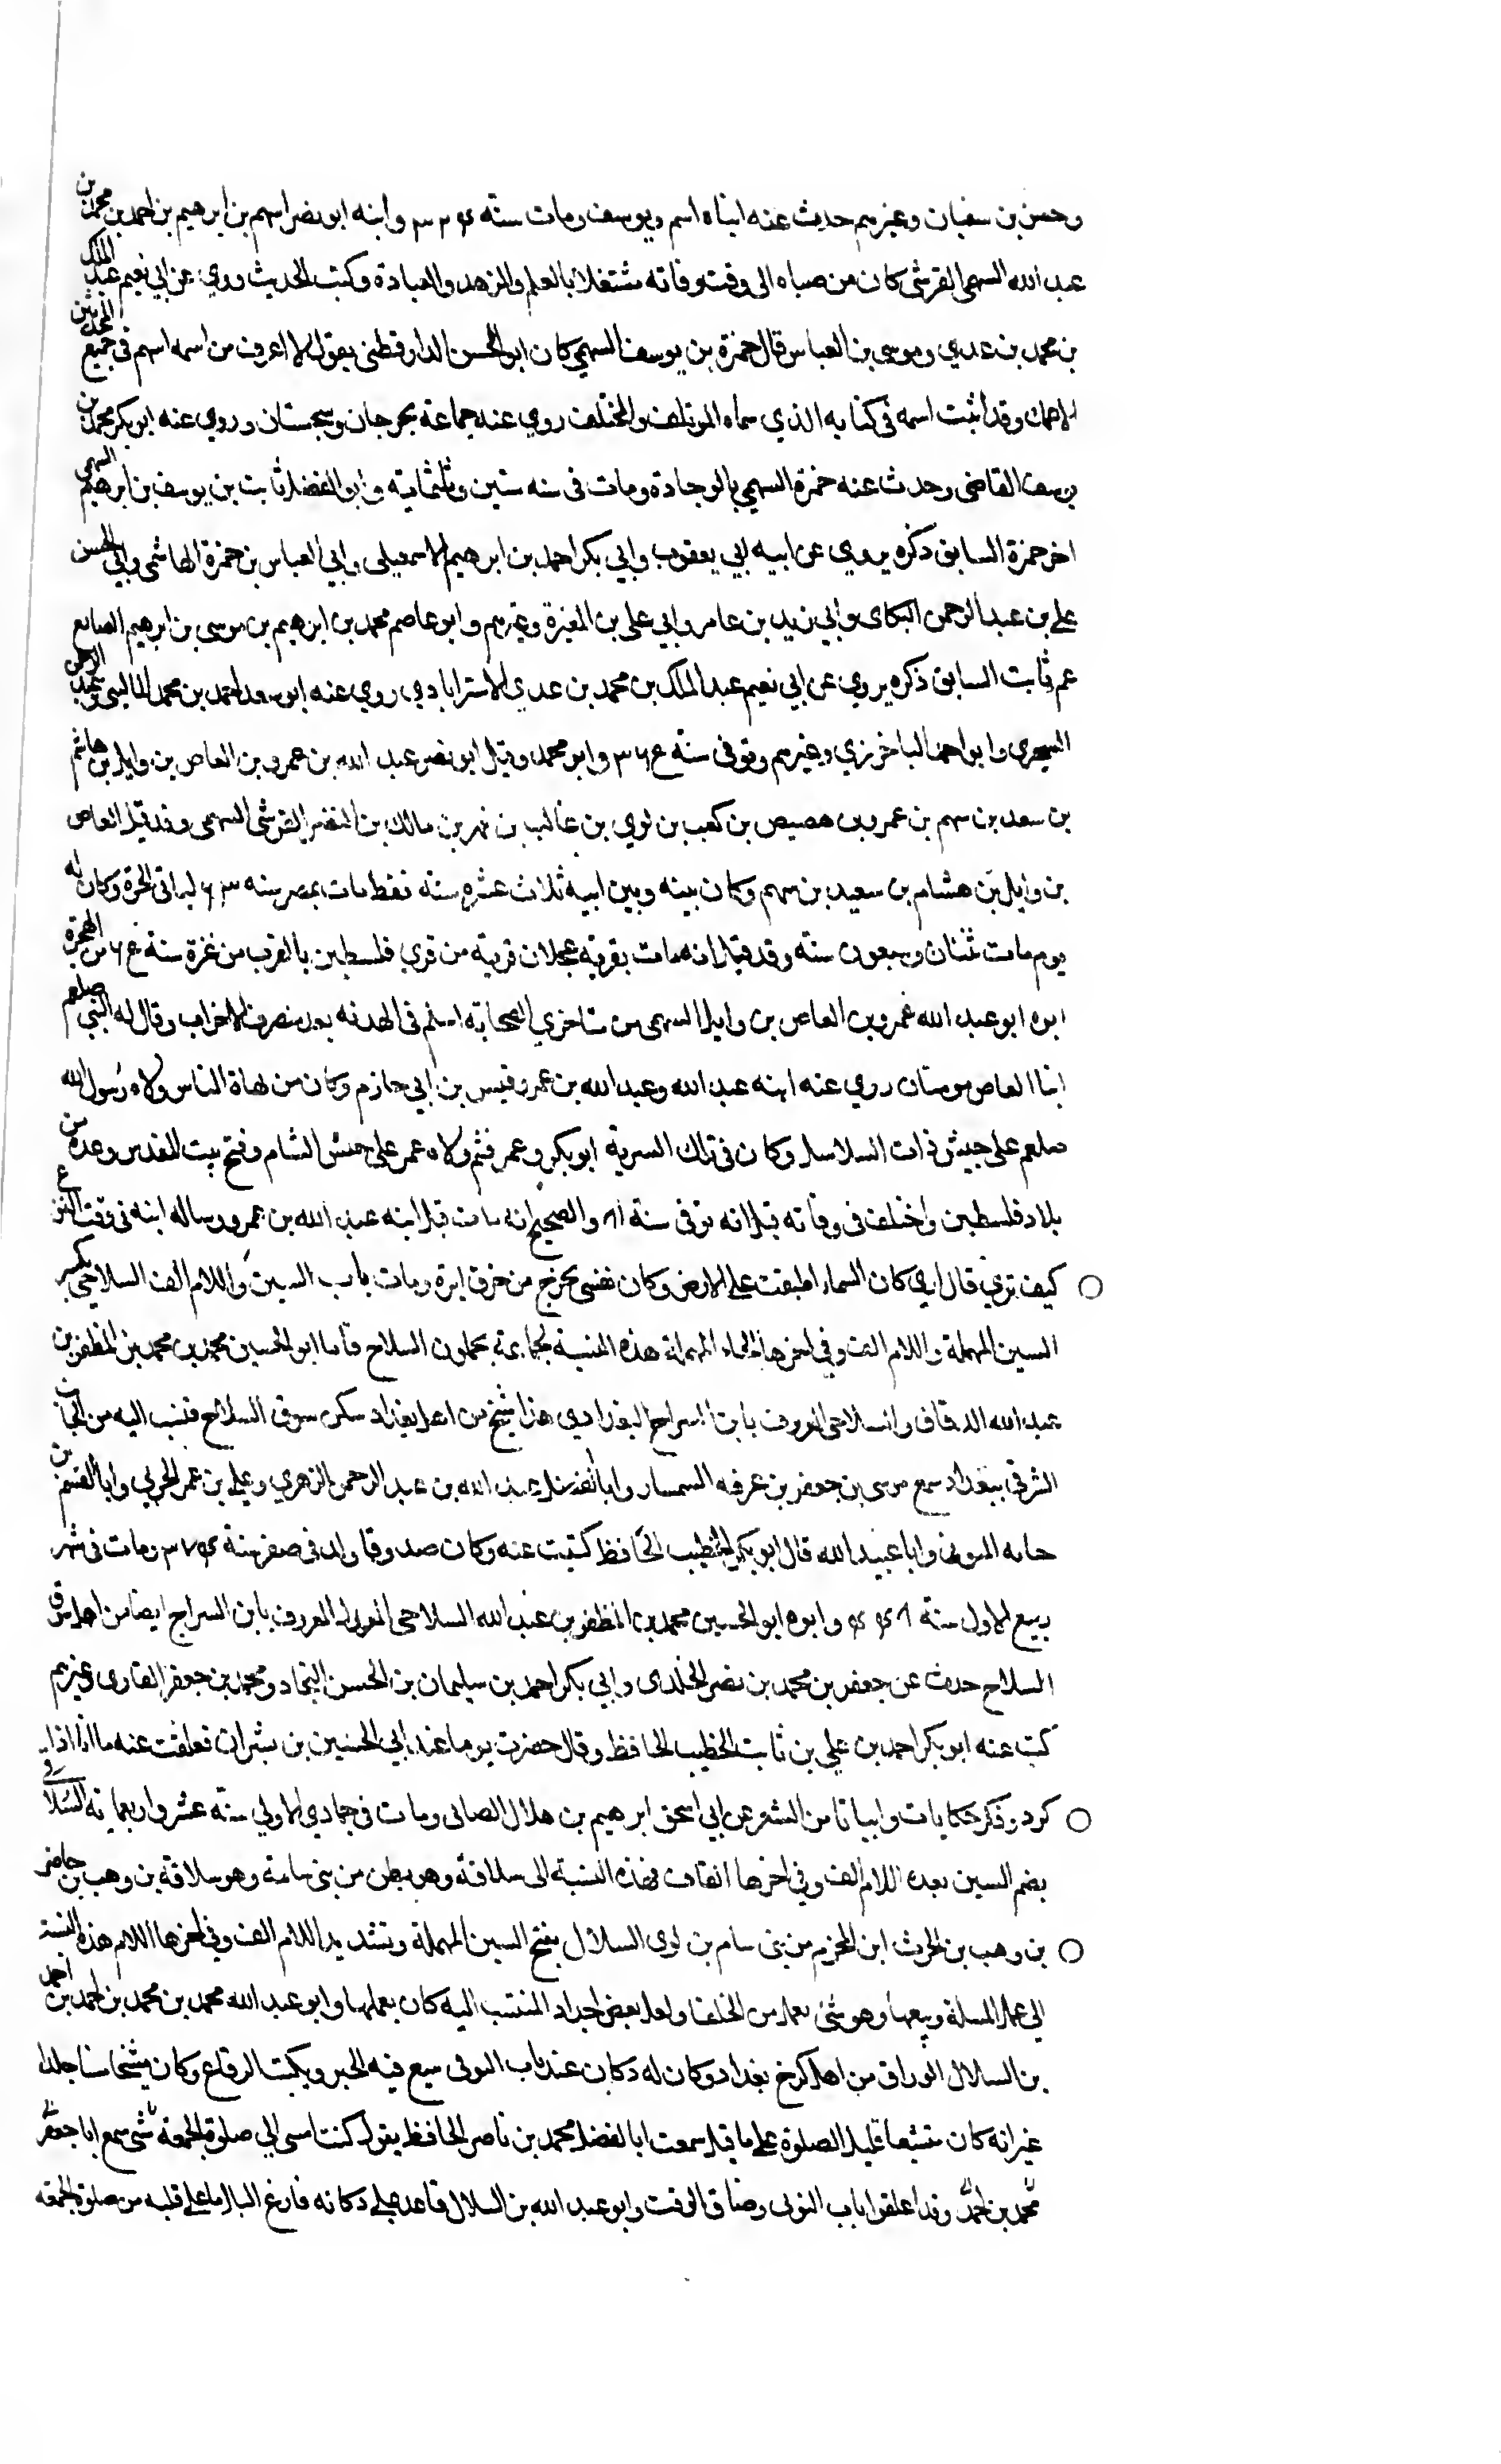 وحسن بن سفيان وغيرهم حدث عنه ابناه اسهم ويوسف ومات سنة وابنه ابو نصر اسهم بن ابرهيم بن احمد بن محمد بن
عبد الله السهمي القرشي كان من صباه الى وقت وفاته مشتغلا بالعلم والزهد والعبادة وكتب الحديث وروي عن ابي نعيم عبد الملك
بن محمد بن عدي وموسي بن العباس قال حمزة بن يوسف السهمي كان ابو الحسن الدارقطني يقول لا اعرف من اسمه اسهم في جميع المحدثين
الا هذا وقد اثبت اسمه في كتابه الذي سماه الموتلف والمختلف روي عنه جماعة بجرجان وسجستان وروي عنه ابو بكر محمد بن
يوسف القاضي وحدث عنه حمزة السهمي بالوجادة ومات في سنه ستين وثلثماية وابو الفضل ثابت بن يوسف بن ابرهيم السهمي
اخو حمزة السابق ذكره يروي عن ابيه ابي يعقوب وابي بكر احمد بن ابرهيم الاسمعيلي وابي العباس بن حمزة الهاشمي وابي الحسن
علي بن عبد الرحمن البكاي وابي زيد بن عامر وابي علي بن المغيرة وغيرهم وابو عاصم محمد بن ابرهيم بن موسى بن ابرهيم الصايع
عم ثابت السابق ذكره يروي عن ابي نعيم عبد الملك بن محمد بن عدي الاسترابادي روي عنه ابو سعد احمد بن محمد الماليني وعبد الرحمن
السجزي وابو احمد الباخرزي وغيرهم وتوفي سنة وابو محمد وقيل ابو نصر عبد الله بن عمرو بن العاص بن وايل بن هاشم
بن سعد بن سهم بن عمرو بن هصيص بن كعب بن لوي بن غالب بن فهر بن مالك بن النضر القرشي السهمي وقد قيل العاص
بن وايل بن هشام بن سعيد بن سهم وكان بينه وبين ابيه ثلاث عشره سنة فقط مات بمصر سنه ليالي الحرة وكان له
يوم مات ثنتان وسبعون سنة وقد قيل انه مات بقرية عجلان قرية من قري فلسطين بالقرب من غزة سنة من الهجرة
ابوه ابو عبد الله عمرو بن العاص بن وايل السهمي من متاخري الصحابة اسلم في الهدنه بعد منصرف الاحزاب وقال له النبي صلعم
ابنا العاص مومنان روي عنه ابنه عبد الله وعبد الله بن عمر وقيس بن ابي حازم وكان من دهاة الناس ولاه رسول الله
صلعم على جيش ذات السلاسل وكان في تلك السرية ابو بكر وعمر فثم ولاه عمر على جيش الشام وفتح بيت المقدس وعدة من
بلاد فلسطين واختلف في وفاته قيل انه توفي سنة والصحيح انه مات قبل ابنه عبد الله بن عمرو وساله ابنه في وقت النزع
كيف تري قال اري كان السماء اطبقت على الارض وكان نفسي يخرج من خرق ابرة ومات باب السين واللام الف السلاحي بكسر
السين المهملة واللام الف وفي اخرها الحاء المهملة هذه النسبة لجماعة يحملون السلاح فاما ابو الحسين محمد بن محمد بن المظفر بن
عبد الله الدقاق والسلاحي المعروف بابن السراج البغدادي هذا شيخ من اهل بغداد سكن سوق السلاح فنسب اليه من الجانب
الشرقي ببغداد سمع موسى بن جعفر بن عرفه السمسار وابا الفضل عبيد الله بن عبد الرحمن الزهري وعلي بن عمر الحربي وابا القسم بن
وابا عبيد الله قال ابو بكر الخطيب الحافظ كتبت عنه وكان صدوقا ولد في صفر سنة ومات في شهر
ربيع الاول سنة وابوه ابو الحسين محمد بن المظفر بن عبد الله السلاحي المعدل المعروف بابن السراج ايضا من اهل سوق
السلاح حدث عن جعفر بن محمد بن نصر الخلدي وابي بكر احمد بن سليمان بن الحسن النجاد ومحمد بن جعفر القاري وغيرهم
كتب عنه ابو بكر احمد بن علي بن ثابت الخطيب الحافظ وقال حضرت يوما عند ابي الحسين بن بشران فعلقت عنه
وذكر حكايات وابياتا من الشعر عن ابي اسحق ابرهيم بن هلال الصابي ومات في جمادي الاولي سنة عشر واربعماية السلاقي
بضم السين بعده اللام الف وفي اخرها القاف هذه النسبة الى سلاقة وهو بطن من بني سامة وهو سلاقة بن وهب بن حاضر
بن وهب بن الحرث ابن المخزم من بني سام بن لوي السلال بفتح السين المهملة وتشديد اللام الف وفي اخرها اللام هذه النسبة
الي عمل السلة وبيعها وهو شئ يعمل من الحلفا ولعل بعض اجداد المنتسب اليه كان يعملها وابو عبد الله محمد بن محمد بن احمد بن احمد
بن السلال الوراق من اهل كرخ بغداد وكان له دكان عند باب النوبي يبيع فيه الحبر ويكتب الرقاع وكان شيخا مسنا جلدا
غير انه كان متشيعا قليل الصلوة على ما قيل سمعت ابا الفضل محمد بن ناصر الحافظ يقول كنت امسي الي صلوة الجمعة سمع ابا جعفر
محمد بن احمد وقد اغلقوا باب النوبي وضاق الوقت وابو عبد الله بن السلال قاعد على دكانه فارغ البال ما على قلبه من صلوة الجمعه